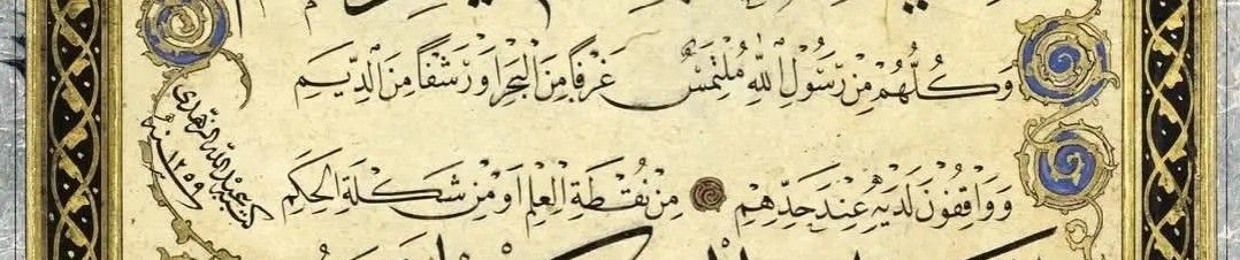 وَكُلُّهُمْ مِنْ رَسُولِ اللهِ مُلْتَمِسٌ غَرْفًا مِنَ الْبَحْرِ اَوْ رَشْفًا مِنَ الدِّيَمِ
وَوَاقِفُونَ لَدَيْهِ عِنْدَ حَدِّهِمِ مِنْ نُقْطَةِ الْعِلْمِ اَوْ مِنْ شَكْلَةِ الْحِكَمِ
كتبه عبد الله الزهدى
سنة ١٢٥٩